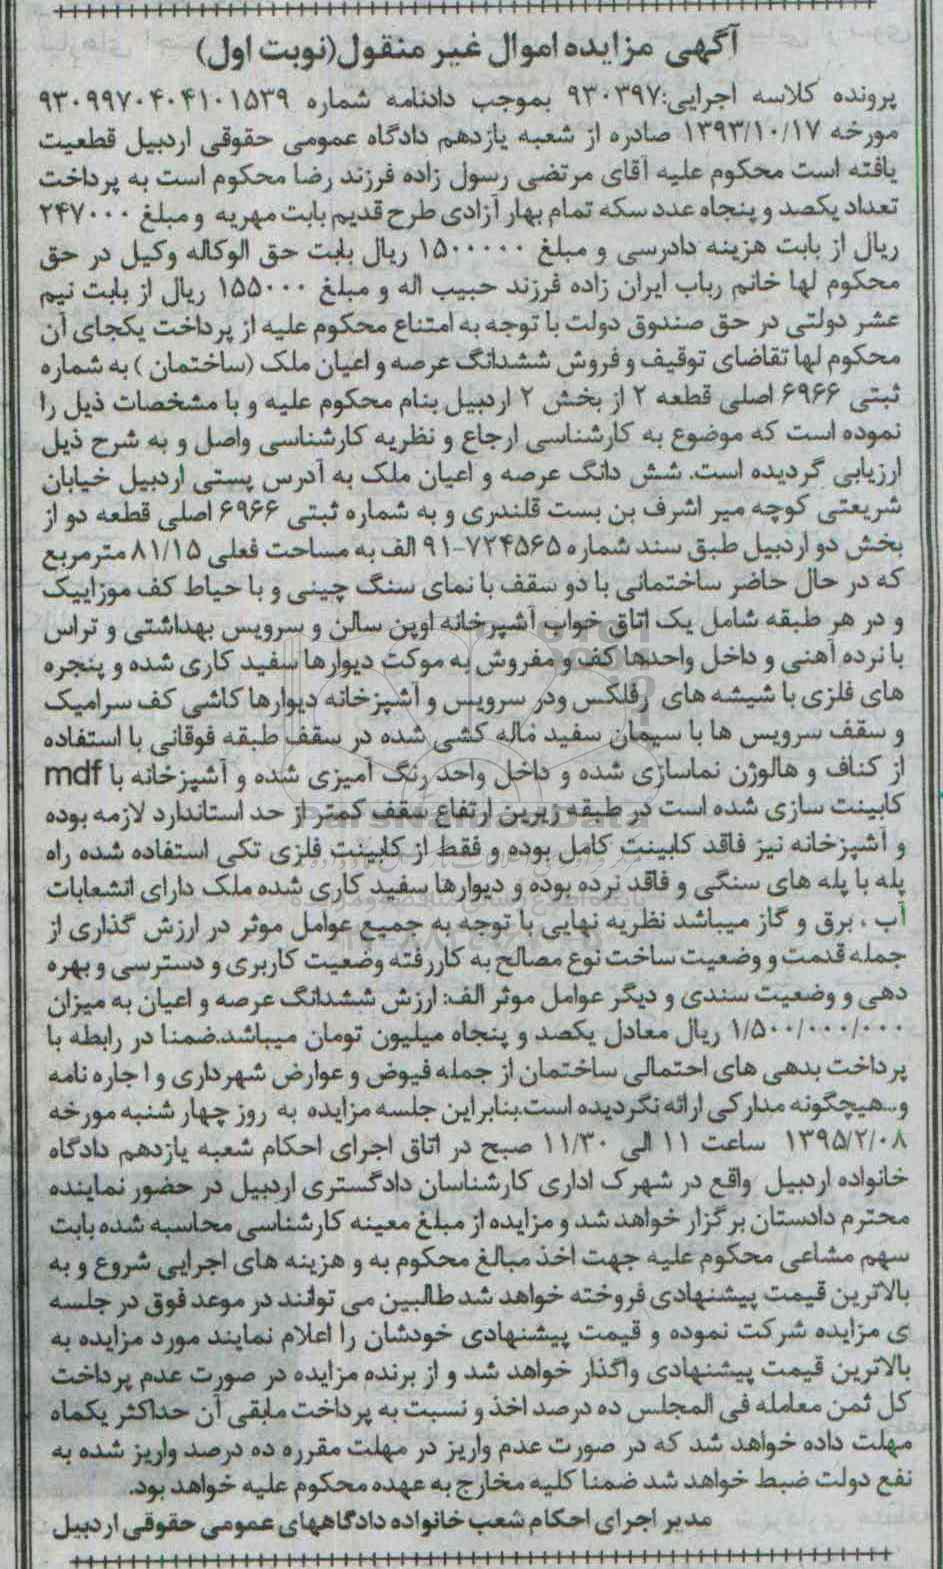 آگهی مزایده اموال غیر منقول(نوبت اول)
پرونده کلاسه اجرایی:۹۳۰۳۹۷ بموجب دادنامه شماره ۹۳۰۹۹۷۰۴۰۴۱۰۱۵۳۹
مورخه ۱۳۹۳/۱۰/۱۷ صادره از شعبه یازدهم دادگاه عمومی حقوقی اردبیل قطعیت
یافته است محکوم علیه آقای مرتضی رسول زاده فرزند رضا محکوم است به پرداخت
تعداد یکصد و پنجاه عدد سکه تمام بهار آزادی طرح قدیم بابت مهریه و مبلغ ۲۴۷۰۰۰
ریال از بابت هزینه دادرسی و مبلغ ۱۵۰۰۰۰۰ ریال بابت حق الوکاله وکیل در حق
محکوم لها خانم رباب ایران زاده فرزند حبیب اله و مبلغ ۱۵۵۰۰۰ ریال از بابت نیم
عشر دولتی در حق صندوق دولت با توجه به امتناع محکوم علیه از پرداخت یکجای آن
محکوم لها تقاضای توقیف و فروش ششدانگ عرصه و اعیان ملک (ساختمان ) به شماره
ثبتی ۶۹۶۶ اصلی قطعه ۲ از بخش ۲ اردبیل بنام محکوم علیه و با مشخصات ذیل را
نموده است که موضوع به کارشناسی ارجاع و نظریه کارشناسی واصل و به شرح ذیل
ارزیابی گردیده است. شش دانگ عرصه و اعیان ملک به آدرس پستی اردبیل خیابان
شریعتی کوچه میر اشرف بن بست قلندری و به شماره ثبتی ۶۹۶۶ اصلی قطعه دو از
بخش دو اردبیل طبق سند شماره ۷۲۴۵۶۵-۹۱ الف به مساحت فعلی ۸۱/۱۵ مترمربع
که در حال حاضر ساختمانی با دو سقف با نمای سنگ چینی و با حیاط کف موزاییک
و در هر طبقه شامل یک اتاق خواب آشپرخانه اوپن سالن و سرویس بهداشتی و تراس
با نرده آهنی و داخل واحدها کف و مفروش به موکت دیوارها سفید کاری شده و پنجره
های فلزی با شیشه های رفلکس ودر سرویس و آشپزخانه دیوارها کاشی کف سرامیک
و سقف سرویس ها با سیمان سفید ماله کشی شده در سقف طبقه فوقانی با استفاده
از کناف و هالوژن نماسازی شده و داخل واحد رنگ آمیزی شده و آشپزخانه با mdf
کابینت سازی شده است در طبقه زیرین ارتفاع سقف کمتر از حد استاندارد لازمه بوده
و آشپزخانه نیز فاقد کابینت کامل بوده و فقط از کابینت فلزی تکی استفاده شده راه
پله با پله های سنگی و فاقد نرده بوده و دیوارها سفید کاری شده ملک دارای انشعابات
آب ، برق و گاز میباشد نظریه نهایی با توجه به جمیع عوامل موثر در ارزش گذاری از
جمله قدمت و وضعیت ساخت نوع مصالح به کاررفته وضعیت کاربری و دسترسی و بهره
دهی و وضعیت سندی و دیگر عوامل موثر الف: ارزش ششدانگ عرصه و اعیان به میزان
۱/۵۰۰/۰۰۰/۰۰۰ ریال معادل یکصد و پنجاه میلیون تومان میباشد.ضمنا در رابطه با
پرداخت بدهی های احتمالی ساختمان از جمله فیوض و عوارض شهرداری و اجاره نامه
و...هیچگونه مدارکی ارائه نگردیده است.بنابراین جلسه مزایده به روز چهار شنبه مورخه
۱۳۹۵/۲/۰۸ ساعت ۱۱ الی ۱۱/۳۰ صبح در اتاق اجرای احکام شعبه یازدهم دادگاه
خانواده اردبیل واقع در شهرک اداری کارشناسان دادگستری اردبیل در حضور نماینده
محترم دادستان برگزار خواهد شد و مزایده از مبلغ معینه کارشناسی محاسبه شده بابت
سهم مشاعی محکوم علیه جهت اخذ مبالغ محکوم به و هزینه های اجرایی شروع و به
بالاترین قیمت پیشنهادی فروخته خواهد شد طالبین می توانند در موعد فوق در جلسه
ی مزایده شرکت نموده و قیمت پیشنهادی خودشان را اعلام نمایند مورد مزایده به
بالاترین قیمت پیشنهادی واگذار خواهد شد و از برنده مزایده در صورت عدم پرداخت
کل ثمن معامله فی المجلس ده درصد اخذ و نسبت به پرداخت مابقی آن حداکثر یکماه
مهلت داده خواهد شد که در صورت عدم واریز در مهلت مقرره ده درصد واریز شده به
نفع دولت ضبط خواهد شد ضمنا کلیه مخارج به عهده محکوم علیه خواهد بود.
مدیر اجرای احکام شعب خانواده دادگاههای عمومی حقوقی اردبیل